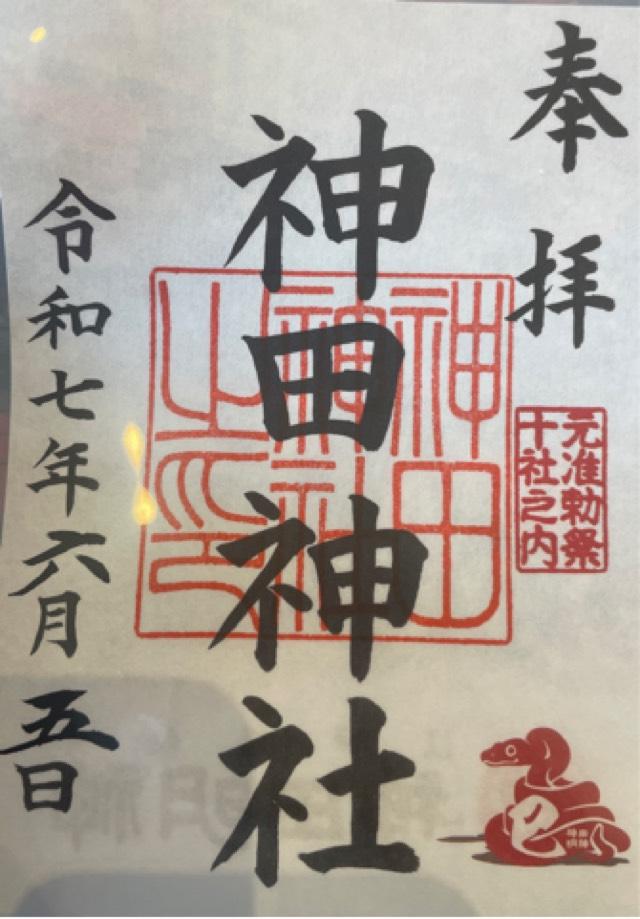 奉拝
元准勅祭
十社之内
神田神社
神田
神社
之印
令和七年六月五日
巳